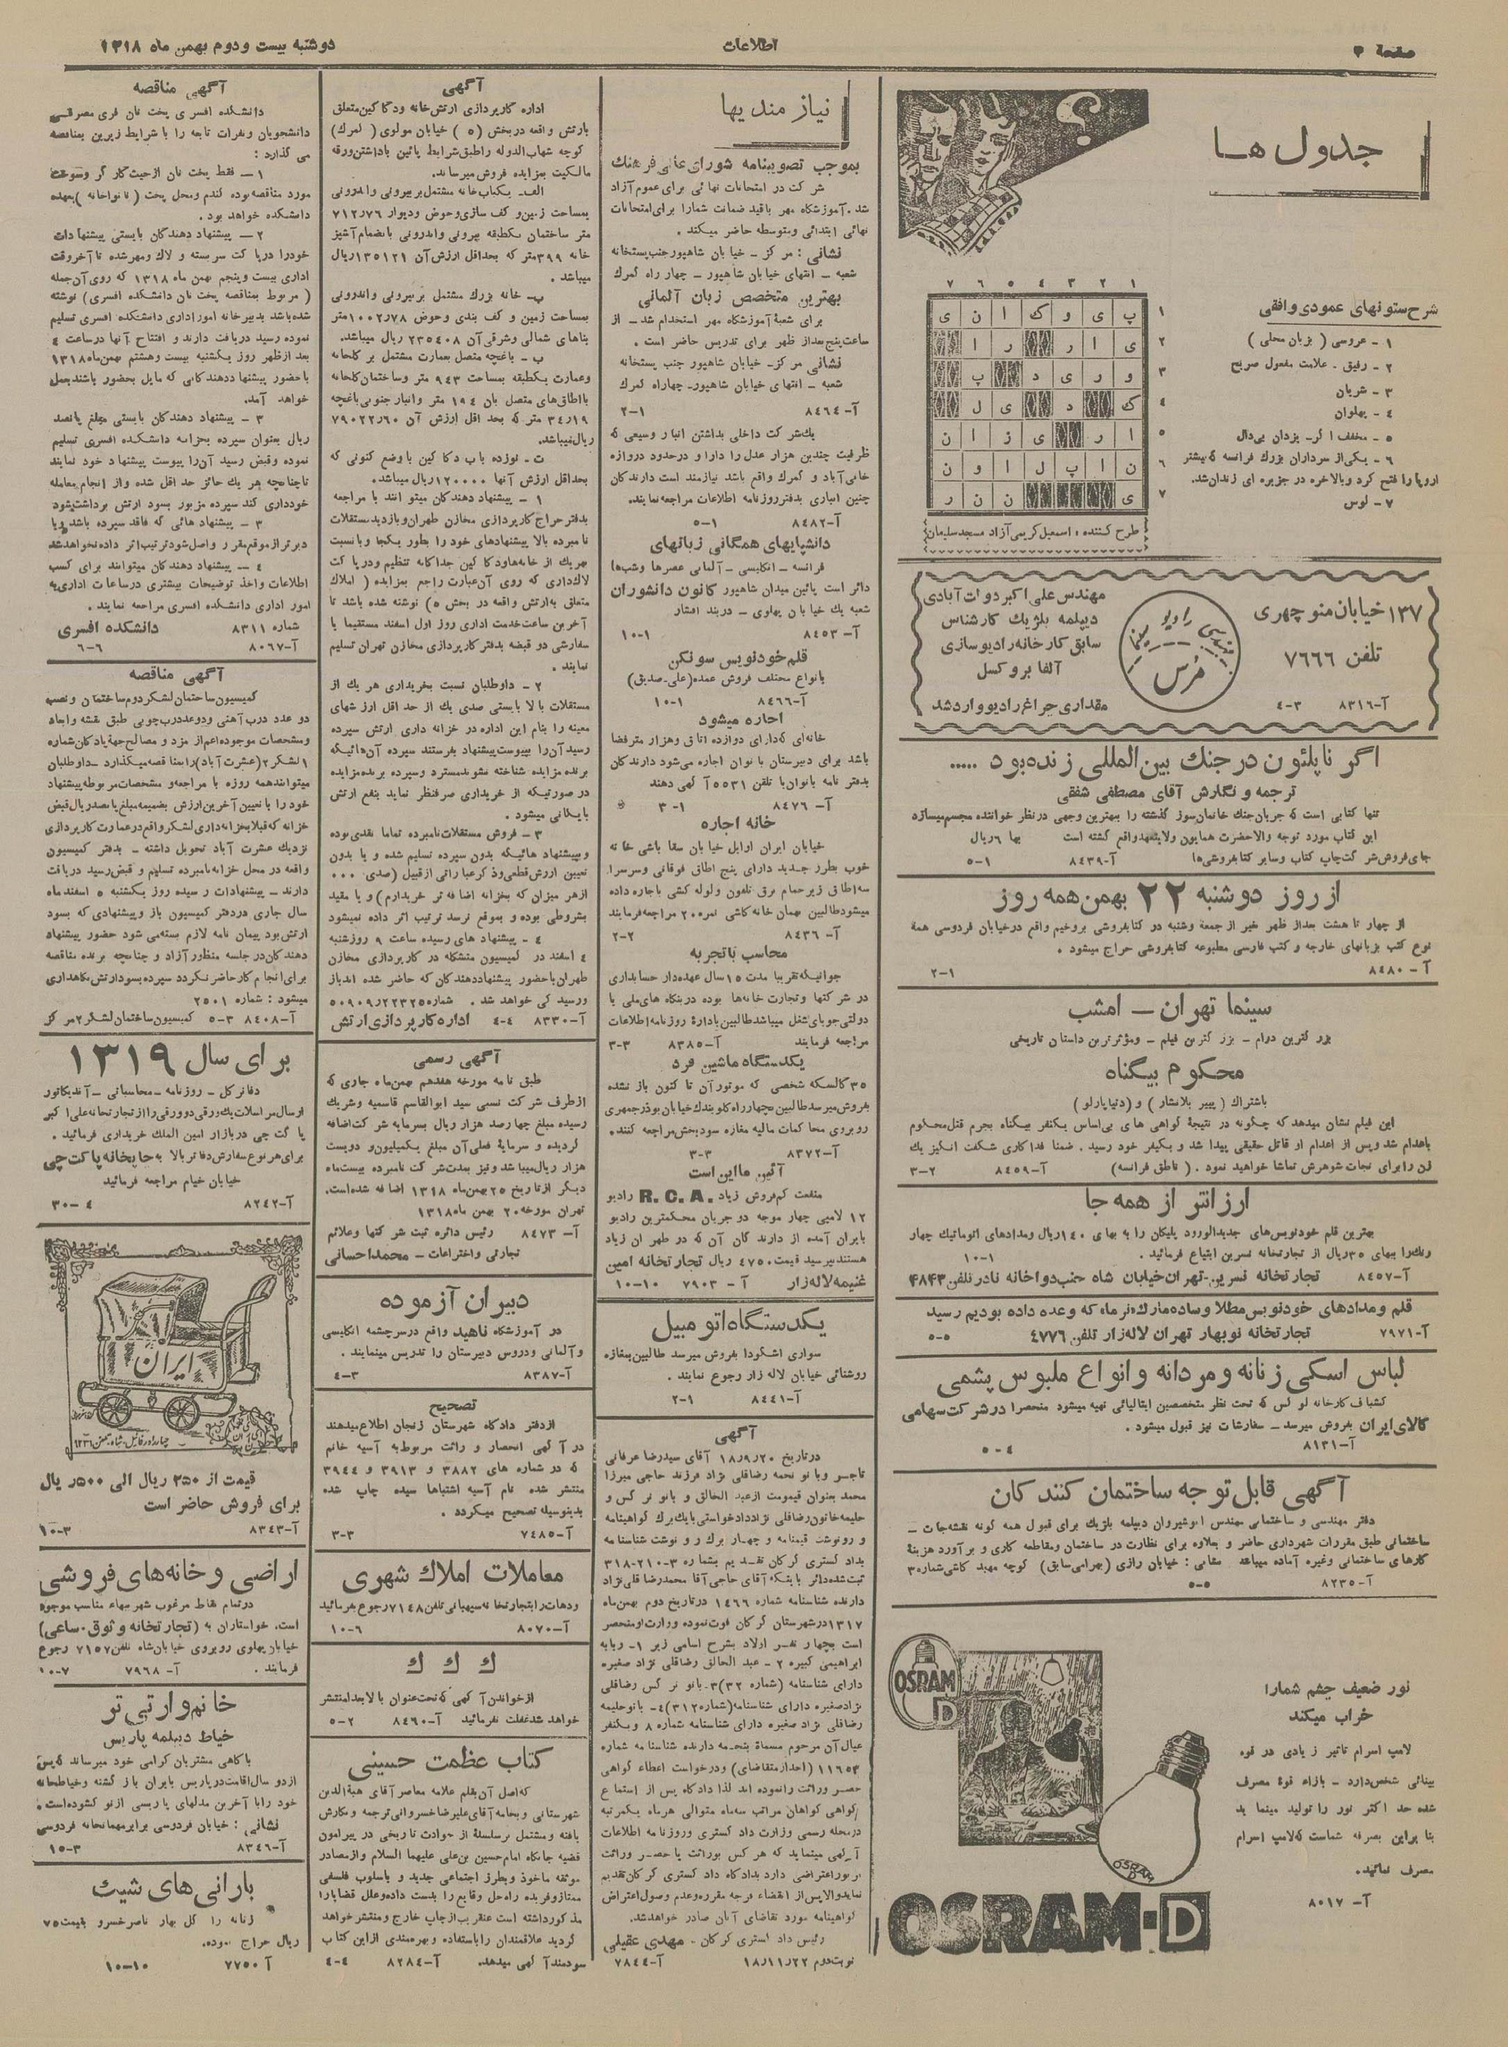 صفحهٔ ۳
اطلاعات
دوشنبه بیست ودوم بهمن ماه ۱۳۱۸
جدول ها
شرح ستونهای عمودی وافقی
۱ - عروسی ( بزبان محلی )
۲ - رفیق . علامت مفعول صریح
۳ - شریان
۴ - پهلوان
۵ - مخفف اگر - یزدان بی‌دال
۶ - یکی از سرداران بزرك فرانسه که بیشتر
اروپا را فتح کرد وبالاخره در جزیره ای زندان شد.
۷ - لوس
۱ ۲ ۳ ۴ ۵ ۶ ۷
طرح کننده : اسمعیل کریمی آزاد مسجد سلیمان
۱۳۷ خیابان منوچهری
تلفن ۷۶۶۶
آ-۸۳۱۶ ۳-۴
مهندس علی اکبر دولت آبادی
دیپلمه بلژیك کارشناس
سابق کارخانه رادیوسازی
آلفا بروکسل
مقداری چراغ رادیو وارد شد
اگر ناپلئون در جنك بین‌المللی زنده بود .....
ترجمه و نگارش آقای مصطفی شفقی
تنها کتابی است که جریان جنك خانمان‌سوز گذشته را ببهترین وجهی در نظر خواننده مجسم میسازد
این کتاب مورد توجه والاحضرت همایون ولایتعهد واقع گشته است بها ۶ ریال
جای فروش شرکت چاپ کتاب وسایر کتابفروشی‌ها آ-۸۴۳۹ ۱-۵
از روز دوشنبه ۲۲ بهمن همه روز
از چهار تا هشت بعداز ظهر غیر از جمعه وشنبه دو کتابفروشی بروخیم واقع در خیابان فردوسی همه
نوع کتب بزبانهای خارجه و کتب فارسی مطبوعه کتابفروشی حراج میشود .
آ- ۸۴۸۰ ۱-۲
سینما تهران - امشب
بزرگترین درام - بزرگترین فیلم - ومؤثرترین داستان تاریخی
محکوم بیگناه
باشتراك ( پییر بلانشار ) و (دنیا پارلو )
این فیلم نشان میدهد که چگونه در نتیجهٔ گواهی های بی‌اساس یکنفر بیگناه بجرم قتل محکوم
باعدام شد وپس از اعدام او قاتل حقیقی پیدا شد و بکیفر خود رسید . ضمناً فداکاری شگفت انگیز یك
زن را برای نجات شوهرش تماشا خواهید نمود . ( ناطق فرانسه ) آ-۸۴۵۹ ۲-۳
ارزانتر از همه جا
بهترین قلم خودنویس‌های جدیدالورود پلیکان را به بهای ۱۴۰ ریال ومدادهای اتوماتیك چهار
رنك را ببهای ۳۵ ریال از تجارتخانه نسرین ابتیاع فرمائید . ۱-۱۰
آ-۸۴۵۷ تجارتخانه نسرین-تهران خیابان شاه جنب دواخانه نادر تلفن ۴۸۴۳
قلم ومدادهای خودنویس مطلا وساده مارك نرماء که وعده داده بودیم رسید
آ-۷۹۷۱ تجارتخانه نوبهار تهران لاله زار تلفن ۴۷۷۶ ۵-۵
لباس اسکی زنانه و مردانه و انواع ملبوس پشمی
کشباف کارخانه لوکس که تحت نظر متخصصین ایتالیائی تهیه میشود منحصراً در شرکت سهامی
کالای ایران بفروش میرسد - سفارشات نیز قبول میشود .
آ-۸۱۳۱ ۴-۵
آگهی قابل توجه ساختمان کنندگان
دفتر مهندسی و ساختمانی مهندس انوشیروان دیپلمه بلژیك برای قبول همه گونه نقشه‌جات -
ساختمانی طبق مقررات شهرداری حاضر و بعلاوه برای نظارت در ساختمان ومقاطعه کاری و برآورد هزینهٔ
کارهای ساختمانی وغیره آماده میباشد نشانی : خیابان رازی (بهرامی سابق) کوچه مهبد کاشی شماره ۳
آ-۸۲۳۵ ۵-۵
OSRAM D
نور ضعیف چشم شمارا
خراب میکند
لامپ اسرام تاثیر زیادی در قوه
بینائی شخص دارد - بازاء قوهٔ مصرف
شده حد اکثر نور را تولید مینماید
بنابراین بصرفه شماست که لامپ اسرام
مصرف نمائید.
آ- ۸۰۱۷
OSRAM-D
نیازمندیها
بموجب تصویبنامه شورای عالی فرهنك
شرکت در امتحانات نهائی برای عموم آزاد
شد. آموزشگاه مهر باقید ضمانت شمارا برای امتحانات
نهائی ابتدائی ومتوسطه حاضر میکند .
نشانی : مرکز - خیابان شاهپور جنب پستخانه
شعبه - انتهای خیابان شاهپور - چهار راه گمرك
بهترین متخصص زبان آلمانی
برای شعبهٔ آموزشگاه مهر استخدام شد - از
ساعت پنج بعداز ظهر برای تدریس حاضر است .
نشانی مرکز- خیابان شاهپور جنب پستخانه
شعبه - انتهای خیابان شاهپور- چهاراه گمرك
آ-۸۴۶۴ ۱-۲
یك شرکت داخلی بداشتن انبار وسیعی که
ظرفیت چندین هزار عدل را دارا و در حدود دروازه
خانی‌آباد و گمرك واقع باشد نیازمند است دارندگان
چنین انباری بدفتر روزنامه اطلاعات مراجعه نمایند.
آ-۸۴۸۲ ۱-۵
دانشپایهای همگانی زبانهای
فرانسه - انگلیسی - آلمانی عصرها وشب‌ها
دائر است پائین میدان شاهپور کانون دانشوران
شعبه یك خیابان پهلوی - دربند افشار
آ- ۸۴۵۳ ۱-۱۰
قلم خودنویس سونکن
بانواع مختلف فروش عمده (علی-صدیق)
آ-۸۴۶۶ ۱-۱۰
اجاره میشود
خانه‌ای که دارای دوازده اتاق وهزار متر فضا
باشد برای دبیرستان بانوان اجاره می‌شود دارندگان
بدفتر نامه بانوان یا تلفن ۵۵۳۱ آگهی دهند
آ- ۸۴۷۶ ۱-۳
خانه اجاره
خیابان ایران اوایل خیابان سقا باشی خانه
خوب بطرز جدید دارای پنج اطاق فوقانی وسرسرا
سه اطاق زیر حمام برق تلفون ولوله کشی باجاره داده
میشود طالبین بهمان خانه کاشی نمره ۲۰ مراجعه فرمایند
آ- ۸۴۳۶ ۲-۲
محاسب باتجربه
جوانیکه تقریباً مدت ۱۵ سال عهده‌دار حسابداری
در شرکتها وتجارت خانه‌ها بوده در بنگاه های ملی یا
دولتی جویای شغل میباشد طالبین بادارهٔ روزنامه اطلاعات
مراجعه فرمایند آ-۸۳۸۵ ۳-۳
یکدستگاه ماشین فرد
۳۵ کالسکه شخصی که موتور آن تا کنون باز نشده
بفروش میرسد طالبین بچهارراه کلوبندك خیابان بوذرجمهری
روبروی محاکمات مالیه مغازه سودبخش مراجعه کنند.
آ-۸۳۷۲ ۳-۳
آئین ما این است
منفعت کم فروش زیاد .R. C. A رادیو
۱۲ لامپی چهار موجه دو جریان محکمترین رادیو
بایران آمده از دارندگان آن که در طهران زیاد
هستند بپرسید قیمت ۴۷۵۰ ریال تجارتخانه امین
غنیمه لاله‌زار آ- ۷۹۰۳ ۱۰-۱۰
یکدستگاه اتومبیل
سواری اشکودا بفروش میرسد طالبین بمغازه
روشنائی خیابان لاله زار رجوع نمایند .
آ-۸۴۴۱ ۱-۲
آگهی
در تاریخ ۱۸/۹/۲۰ آقای سیدرضا عرفانی
تاجر وبانو نجمه رضاقلی نژاد فرزند حاجی میرزا
محمد بعنوان قیمومت از عبد الخالق و بانو نرگس و
حلیمه خاتون رضاقلی نژاد دادخواستی با یك برك گواهینامه
و رونوشت قیمنامه و چهار برك رونوشت شناسنامه
بداد گستری گرگان تقدیم بشماره ۳-۲۱۰-۳۱۸
ثبت شده دائر باینکه آقای حاجی آقا محمدرضا قلی نژاد
دارنده شناسنامه شماره ۱۴۶۶ در تاریخ دوم بهمن ماه
۱۳۱۷ در شهرستان گرگان فوت نموده وراث او منحصر
است بچهار نفر اولاد بشرح اسامی زیر ۱- ربابه
ابراهیمی کبیره ۲ - عبد الخالق رضاقلی نژاد صغیره
دارای شناسنامهٔ (شماره ۳۲) ۳- بانو نرگس رضاقلی
نژاد صغیره دارای شناسنامه (شماره ۳۱۲) ۴- بانو حلیمه
رضاقلی نژاد صغیره دارای شناسنامه شماره ۸ ویکنفر
عیال آن مرحوم مسماة بنجمه دارنده شناسنامه شماره
۱۱۶۵۳ (احداز متقاضای) ودرخواست اعطاء گواهی
حصر وراثت رانموده اند لذا دادگاه پس از استماع
گواهی گواهان مراتب سه‌ماه متوالی هرماه یکمرتبه
در مجله رسمی وزارت داد گستری وروزنامه اطلاعات
آگهی مینماید که هر کس بوراثت یا حصر وراثت
نامبرده اعتراضی دارد بدادگاه داد گستری گرگان تقدیم
نماید والا پس از انقضاء فرجه مقرره وعدم وصول اعتراض
گواهینامه مورد تقاضای آنان صادر خواهد شد.
رئیس داد گستری گرگان - مهدی عقیلی
نوبت دوم ۱۸/۱۱/۲۲ آ-۷۸۴۴
آگهی
اداره کارپردازی ارتش خانه ودکاکین متعلق
بارتش واقعه در بخش (۵) خیابان مولوی ( گمرك)
کوچه شهاب‌الدوله را طبق شرایط پائین باداشتن ورقه
مالکیت بمزایده فروش میرساند.
الف- یکباب خانه مشتمل بر بیرونی واندرونی
بمساحت زمین و کف سازی و حوض ودیوار ۷۱۲/۷۶
متر ساختمان یکطبقه بیرونی واندرونی بانضمام آشپز
خانه ۳۹۹ متر که بحداقل ارزش آن ۱۳۵۱۲۱ ریال
میباشد .
ب- خانه بزرك مشتمل بر بیرونی واندرونی
بمساحت زمین و کف بندی وحوض ۱۰۰۲/۷۸ متر
بناهای شمالی وشرقی آن ۲۳۵۴۰۸ ریال میباشد.
پ - باغچه متصل بعمارت مشتمل بر گلخانه
وعمارت یکطبقه بمساحت ۹۴۳ متر وساختمان گلخانه
بااطاقهای متصل بان ۱۹۴ متر وانبار جنوبی باغچه
۳۴/۱۹ متر که بحد اقل ارزش آن ۷۹۰۲۲/۶۰
ریال میباشد.
ت- نوزده باب دکاکین باوضع کنونی که
بحداقل ارزش آنها ۱۲۰۰۰۰ ریال میباشد.
۱ - پیشنهاد دهندگان میتوانند با مراجعه
بدفتر حراج کارپردازی مخازن طهران وبازدید مستقلات
نامبرده بالا پیشنهادهای خود را بطور یکجا ویانسبت
بهریك از خانه‌ها ودکاکین جداگانه تنظیم ودر پاکت
لاك‌داری که روی آن عبارت راجع بمزایده ( املاك
متعلق بارتش واقعه در بخش ۵ ) نوشته شده باشد تا
آخرین ساعت خدمت اداری روز اول اسفند مستقیما یا
سفارشی دو قبضه بدفتر کارپردازی مخازن تهران تسلیم
نمایند .
۲ - داوطلبان نسبت بخریداری هر یك از
مستقلات بالا بایستی صدی یك از حد اقل ارزشهای
معینه را بنام این اداره در خزانه داری ارتش سپرده
رسید آن را بپیوست پیشنهاد بفرستند سپرده آن‌هائیکه
برنده مزایده شناخته نشوند مسترد وسپرده برنده مزایده
در صورتیکه از خریداری صرفنظر نماید بنفع ارتش
بایگانی میشود .
۳ - فروش مستقلات نامبرده تماماً نقدی بوده
وپیشنهاد هائیکه بدون سپرده تسلیم شده و یا بدون
تعیین ارزش قطعی وذکر عباراتی از قبیل (صدی ۰۰۰
از هر میزان که بخزانه اضافه‌تر خریدارم) و یا مقید
بشروطی بوده و بموقع نرسد ترتیب اثر داده نمیشود
۴ - پیشنهاد های رسیده ساعت ۹ روز شنبه
۴ اسفند در کمیسیون متشکله در کارپردازی مخازن
طهران باحضور پیشنهاد دهندگان که حاضر شده اند باز
ورسیدگی خواهد شد . شماره ۵۰۹۰۹/۲۲۳۲۵
آ-۸۳۳۰ ۴-۴ اداره کارپردازی ارتش
آگهی رسمی
طبق نامه مورخه هفدهم بهمن‌ماه جاری که
از طرف شرکت نسبی سید ابوالقاسم قاسمیه وشریك
رسیده مبلغ چهارصد هزار ریال بسرمایه شرکت اضافه
گردیده و سرمایهٔ فعلی آن مبلغ یکمیلیون و دویست
هزار ریال میباشد ونیز بمدت شرکت نامبرده بیست ماه
دیگر از تاریخ ۲۵ بهمن ماه ۱۳۱۸ اضافه شده است.
تهران مورخه ۲۰ بهمن ماه ۱۳۱۸
آ- ۸۴۷۳ رئیس دائره ثبت شرکتها وعلائم
تجارتی واختراعات - محمد احسانی
دبیران آزموده
در آموزشگاه ناهید واقع در سرچشمه انگلیسی
و آلمانی ودروس دبیرستان را تدریس مینمایند .
آ-۸۳۸۷ ۳-۴
تصحیح
از دفتر دادگاه شهرستان زنجان اطلاع میدهند
در آگهی انحصار وراثت مربوط به آسیه خانم
که در شماره های ۳۸۸۲ و ۳۹۱۳ و ۳۹۴۴
منتشر شده نام آسیه اشتباهاً سیده چاپ شده
بدینوسیله تصحیح میگردد .
آ-۷۴۸۵ ۳-۳
معاملات املاك شهری
ودهات را بتجارتخانه سپهبانی تلفن ۷۱۴۸ رجوع فرمائید
آ-۸۰۷۰ ۶-۱۰
ك ك ك
از خواندن آگهی که تحت عنوان بالا بعداً منتشر
خواهد شد غفلت نفرمائید آ-۸۴۶۰ ۲-۵
کتاب عظمت حسینی
که اصل آن بقلم علامه معاصر آقای هبة الدین
شهرستانی و بخامه آقای علیرضا خسروانی ترجمه و نگارش
یافته و مشتمل بر سلسلهٔ از حوادث تاریخی در پیرامون
قضیه جانگاه امام حسین بن علی علیهما السلام و از مصادر
موثقه ماخوذ وبطرز اجتماعی جدید و باسلوب فلسفی
ممتاز و فریده راه‌حل وقایع را بدست داده وعلل قضایا را
مذکور داشته است عنقریب از چاپ خارج و منتشر خواهد
گردید علاقمندان را باستفاده و بهره‌مندی از این کتاب
سودمند آگهی میدهد. آ-۸۲۸۴ ۴-۴
آگهی مناقصه
دانشکده افسری پخت نان قری مصرفی
دانشجویان ونفرات تابعه را با شرایط زیرین بمناقصه
می گذارد :
۱ - فقط پخت نان ازحیث کارگر وسوخت
مورد مناقصه بوده گندم ومحل پخت ( نانواخانه ) بعهده
دانشکده خواهد بود .
۲ - پیشنهاد دهندگان بایستی پیشنهادات
خود را در پاکت سربسته و لاك ومهر شده تا آخر وقت
اداری بیست وپنجم بهمن ماه ۱۳۱۸ که روی آن جمله
( مربوط بمناقصه پخت نان دانشکده افسری ) نوشته
شده باشد بدبیرخانه امور اداری دانشکده افسری تسلیم
نموده رسید دریافت دارند و افتتاح آنها در ساعت ۴
بعد از ظهر روز یکشنبه بیست وهشتم بهمن ماه ۱۳۱۸
باحضور پیشنهاد دهندگانی که مایل بحضور باشند بعمل
خواهد آمد.
۳ - پیشنهاد دهندگان بایستی مبلغ پانصد
ریال بعنوان سپرده بخزانه دانشکده افسری تسلیم
نموده وقبض رسید آن را پیوست پیشنهاد خود نمایند
تا چنانچه هر یك حائز حد اقل شده و از انجام معامله
خودداری کند سپرده مزبور بسود ارتش برداشت شود
۳ - پیشنهاد هائی که فاقد سپرده باشد ویا
دیرتر از موقع مقرر واصل شود ترتیب اثر داده نخواهد شد
۴ - پیشنهاد دهندگان میتوانند برای کسب
اطلاعات واخذ توضیحات بیشتری در ساعات اداری به
امور اداری دانشکده افسری مراجعه نمایند .
شماره ۸۳۱۱ دانشکده افسری
آ-۸۰۶۷ ۶-۶
آگهی مناقصه
کمیسیون ساختمان لشکر دوم ساختمان و نصب
دو عدد درب آهنی ودوعدد درب چوبی طبق نقشه وابعاد
ومشخصات موجوده اعم از مزد و مصالح جهة پادگان شماره
۱ لشکر ۲ (عشرت آباد) را بمناقصه میگذارد -داوطلبان
میتوانند همه روزه با مراجعه و مشخصات مربوطه پیشنهاد
خود را با تعیین آخرین ارزش بضمیمه مبلغ پانصد ریال قبض
خزانه که قبلا بخزانه‌داری لشکر واقع در عمارت کارپردازی
نزدیك عشرت آباد تحویل داشته - بدفتر کمیسیون
واقعه در محل خزانه نامبرده تسلیم و قبض رسید دریافت
دارند - پیشنهادات رسیده روز یکشنبه ۵ اسفند ماه
سال جاری در دفتر کمیسیون باز وپیشنهادی که بسود
ارتش بود پیمان نامه لازم بسته می شود حضور پیشنهاد
دهندگان در جلسه منظور آزاد و چنانچه برنده مناقصه
برای انجام کار حاضر نگردد سپرده بسود ارتش نگاهداری
میشود : شماره ۲۵۰۱
آ-۸۴۰۸ ۳-۵ کمیسیون ساختمان لشگر ۲ مرکز
برای سال ۱۳۱۹
دفاتر کل - روزنامه - محاسباتی - آندیکاتور
ارسال مراسلات یك ورقی دوورقی را از تجارتخانه علی اکبر
پاکت چی در بازار امین الملك خریداری فرمائید .
برای هر نوع سفارش دفاتر بالا به چاپخانه پاکت‌چی
خیابان خیام مراجعه فرمائید
آ-۸۲۴۲ ۴-۳۰
ایران
قیمت از ۲۵۰ ریال الی ۵۰۰ ریال
برای فروش حاضر است
آ-۸۳۴۳ ۳-۱۰
اراضی و خانه‌های فروشی
درتمام نقاط مرغوب شهر ببهاء مناسب موجود
است. خواستاران به (تجارتخانه وثوق-ساعی)
خیابان پهلوی روبروی خیابان شاه تلفن ۷۱۵۷ رجوع
فرمایند . آ- ۷۹۶۸ ۷-۱۰
خانم وارتی تر
خیاط دیپلمه پاریس
باآگاهی مشتریان گرامی خود میرساند که پس
از دو سال اقامت در پاریس بایران باز گشته وخیاطخانه
خود را با آخرین مدلهای پاریسی از نو گشوده است.
نشانی : خیابان فردوسی برابر مهمانخانه فردوسی
آ-۸۳۴۶ ۳-۱۵
بارانی های شیك
زنانه را گل بهار ناصرخسرو بقیمت ۷۵
ریال حراج نموده.
آ ۷۷۵۵ ۱۰-۱۰